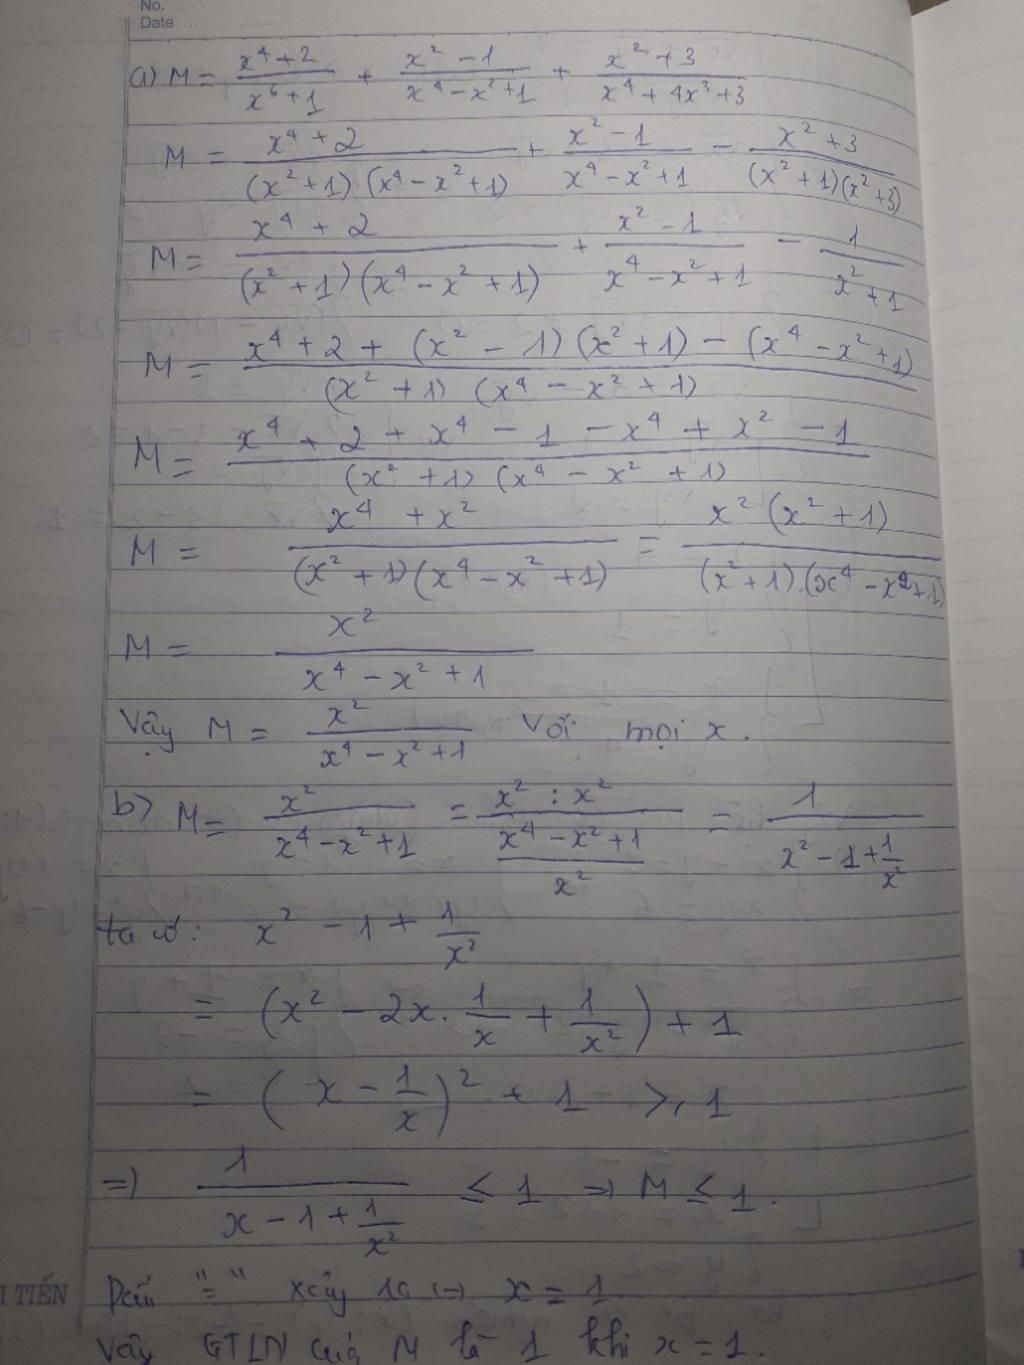 No.
Date
a) M = \frac{x^4+2}{x^6+1} + \frac{x^2-1}{x^4-x^2+1} + \frac{x^2+3}{x^4+4x^3+3}
M = \frac{x^4+2}{(x^2+1)(x^4-x^2+1)} + \frac{x^2-1}{x^4-x^2+1} - \frac{x^2+3}{(x^2+1)(x^2+3)}
M = \frac{x^4+2}{(x^2+1)(x^4-x^2+1)} + \frac{x^2-1}{x^4-x^2+1} - \frac{1}{x^2+1}
M = \frac{x^4+2+(x^2-1)(x^2+1)-(x^4-x^2+1)}{(x^2+1)(x^4-x^2+1)}
M = \frac{x^4+2+x^4-1-x^4+x^2-1}{(x^2+1)(x^4-x^2+1)}
M = \frac{x^4+x^2}{(x^2+1)(x^4-x^2+1)} = \frac{x^2(x^2+1)}{(x^2+1).(x^4-x^2+1)}
M = \frac{x^2}{x^4-x^2+1}
Vậy M = \frac{x^2}{x^4-x^2+1} với mọi x.
b) M = \frac{x^2}{x^4-x^2+1} = \frac{x^2 : x^2}{\frac{x^4-x^2+1}{x^2}} = \frac{1}{x^2-1+\frac{1}{x^2}}
ta có: x^2 - 1 + \frac{1}{x^2}
= (x^2 - 2x.\frac{1}{x} + \frac{1}{x^2}) + 1
= (x - \frac{1}{x})^2 + 1 ≥ 1
=) \frac{1}{x-1+\frac{1}{x^2}} ≤ 1 => M ≤ 1.
I TIẾN
Dấu "=" xảy ra <=> x = 1
Vậy GTLN của M là 1 khi x = 1.